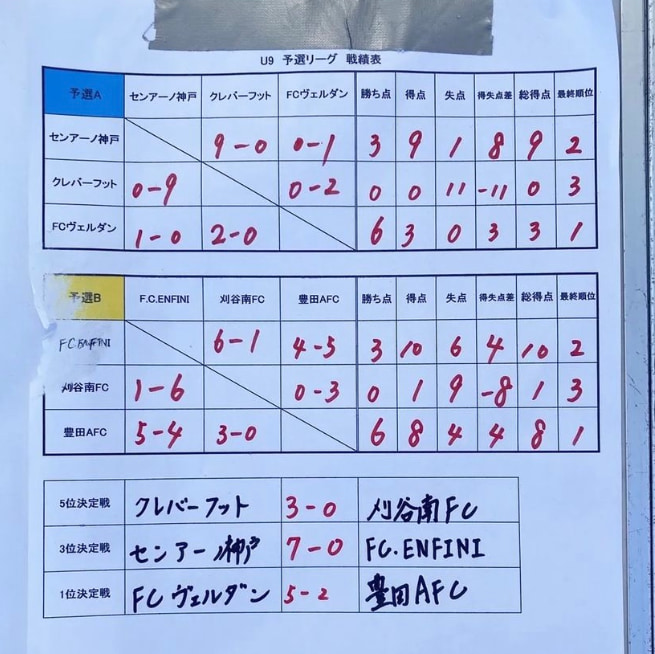 U9 予選リーグ 戦績表
予選A センアーノ神戸 クレバーフット FCヴェルダン 勝ち点 得点 失点 得失点差 総得点 最終順位
センアーノ神戸 9-0 0-1 3 9 1 8 9 2
クレバーフット 0-9 0-2 0 0 11 -11 0 3
FCヴェルダン 1-0 2-0 6 3 0 3 3 1
予選B F.C.ENFINI 刈谷南FC 豊田AFC 勝ち点 得点 失点 得失点差 総得点 最終順位
F.C.ENFINI 6-1 4-5 3 10 6 4 10 2
刈谷南FC 1-6 0-3 0 1 9 -8 1 3
豊田AFC 5-4 3-0 6 8 4 4 8 1
5位決定戦 クレバーフット 3-0 刈谷南FC
3位決定戦 センアーノ神戸 7-0 FC.ENFINI
1位決定戦 FCヴェルダン 5-2 豊田AFC